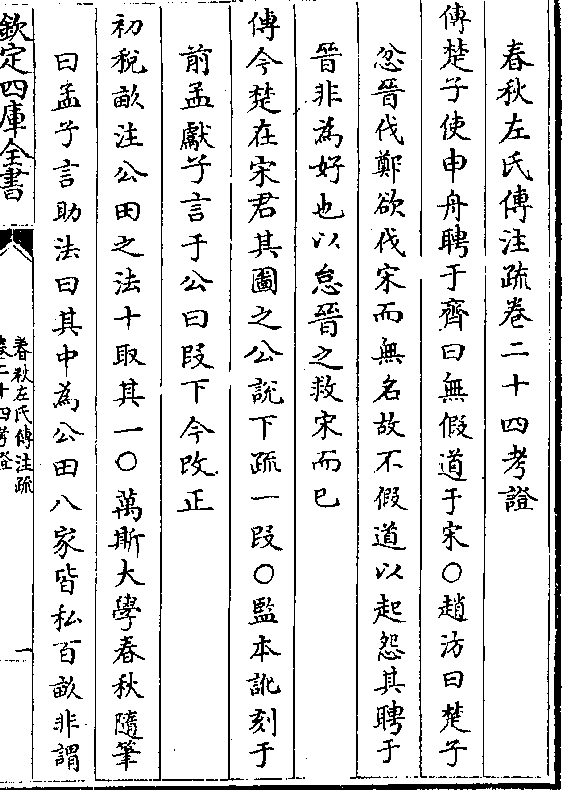 春秋左氏傳注疏卷二十四考證
傳楚子使申舟聘于齊曰無假道于宋○趙汸曰楚子
忿晉伐鄭欲伐宋而無名故不假道以起怨其聘于
晉非為好也以怠晉之救宋而已
傳今楚在宋君其圖之公說下疏一段○監本訛刻于
前孟獻子言于公曰段下今改正
初稅畝注公田之法十取其一○萬斯大學春秋隨筆
曰孟子言助法曰其中為公田八家皆私百畝非謂
欽定四庫全書
春秋左氏傳注疏
卷二十四考證
一